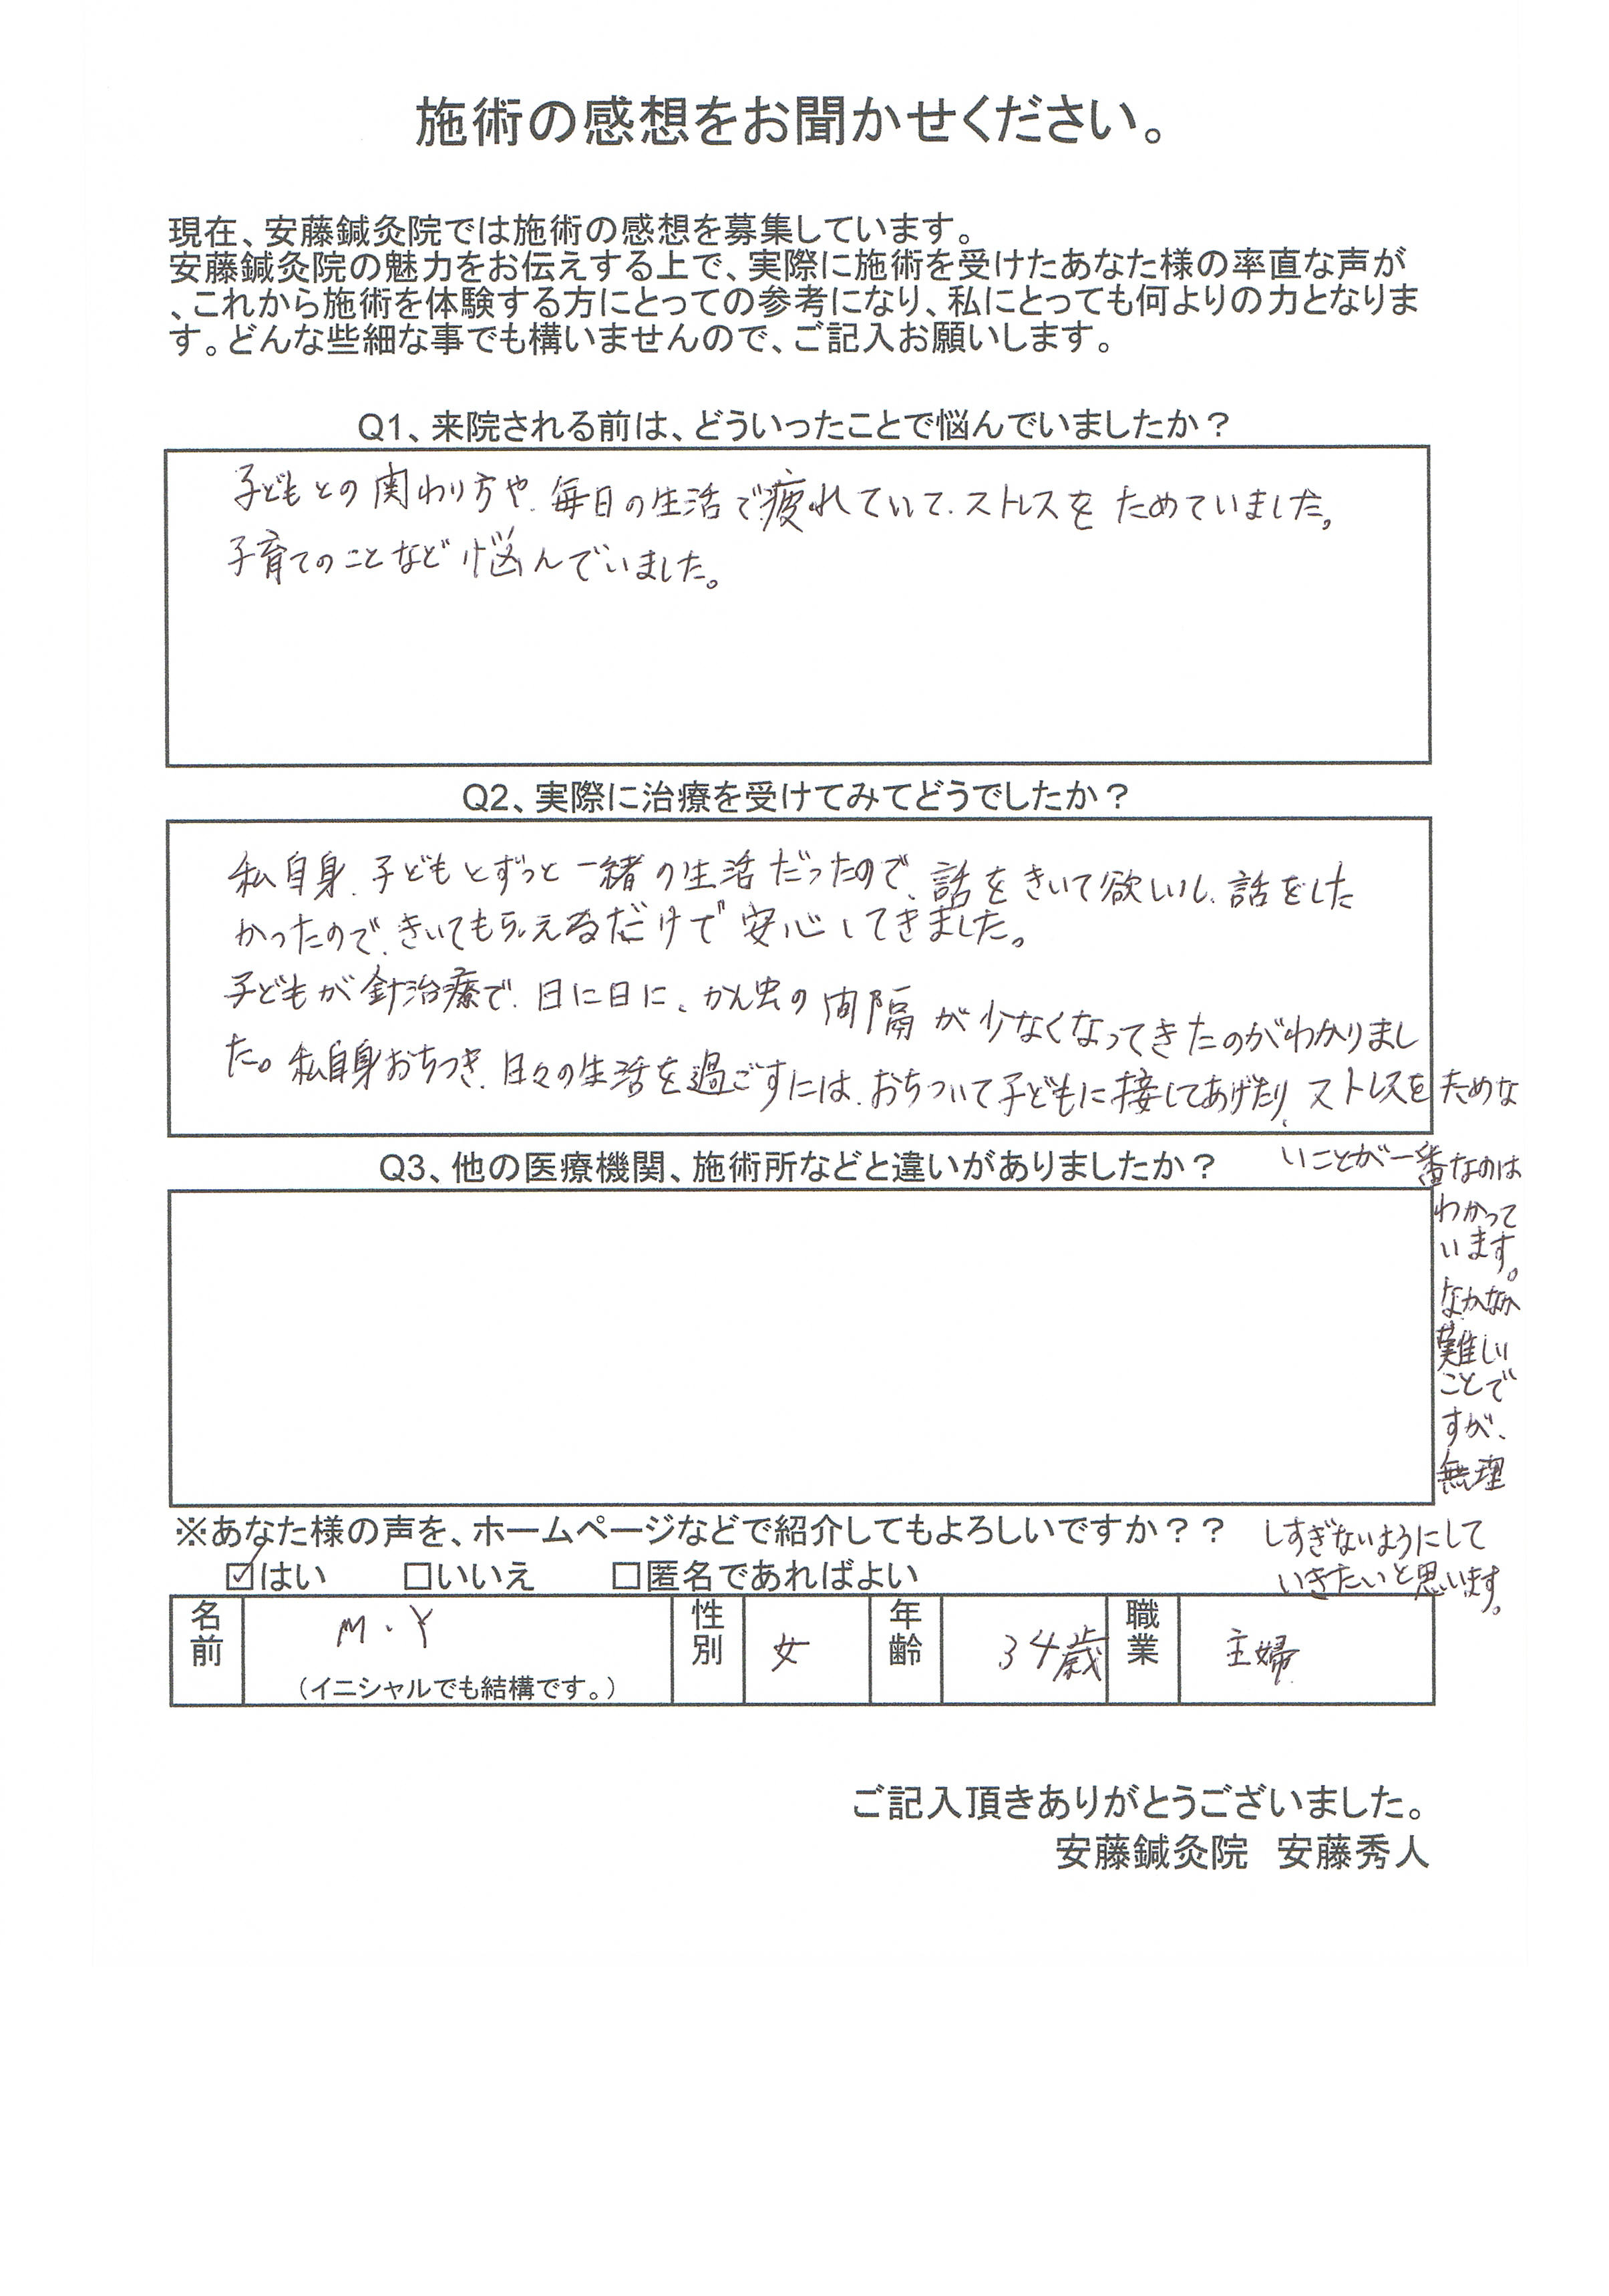 施術の感想をお聞かせください。
現在、安藤鍼灸院では施術の感想を募集しています。
安藤鍼灸院の魅力をお伝えする上で、実際に施術を受けたあなた様の率直な声が
、これから施術を体験する方にとっての参考になり、私にとっても何よりの力となりま
す。どんな些細な事でも構いませんので、ご記入お願いします。
Q1、来院される前は、どういったことで悩んでいましたか？
子どもとの関わり方や、毎日の生活で疲れていて、ストレスをためていました。
子育てのことなど悩んでいました。
Q2、実際に治療を受けてみてどうでしたか？
私自身、子どもとずっと一緒の生活だったので、話をきいて欲しいし、話をした
かったので、きいてもらえるだけで安心してきました。
子どもが針治療で、日に日に、かん虫の間隔が少なくなってきたのがわかりまし
た。私自身おちつき、日々の生活を過ごすには、おちついて子どもに接してあげたり、ストレスをためな
いことが一番なのは
わかって
います。
なかなか
難しい
ことで
すが、
無理
しすぎないようにして
いきたいと思います。
Q3、他の医療機関、施術所などと違いがありましたか？
※あなた様の声を、ホームページなどで紹介してもよろしいですか？？
☑はい □いいえ □匿名であればよい
名前 M.Y 性別 女 年齢 34歳 職業 主婦
（イニシャルでも結構です。）
ご記入頂きありがとうございました。
安藤鍼灸院 安藤秀人